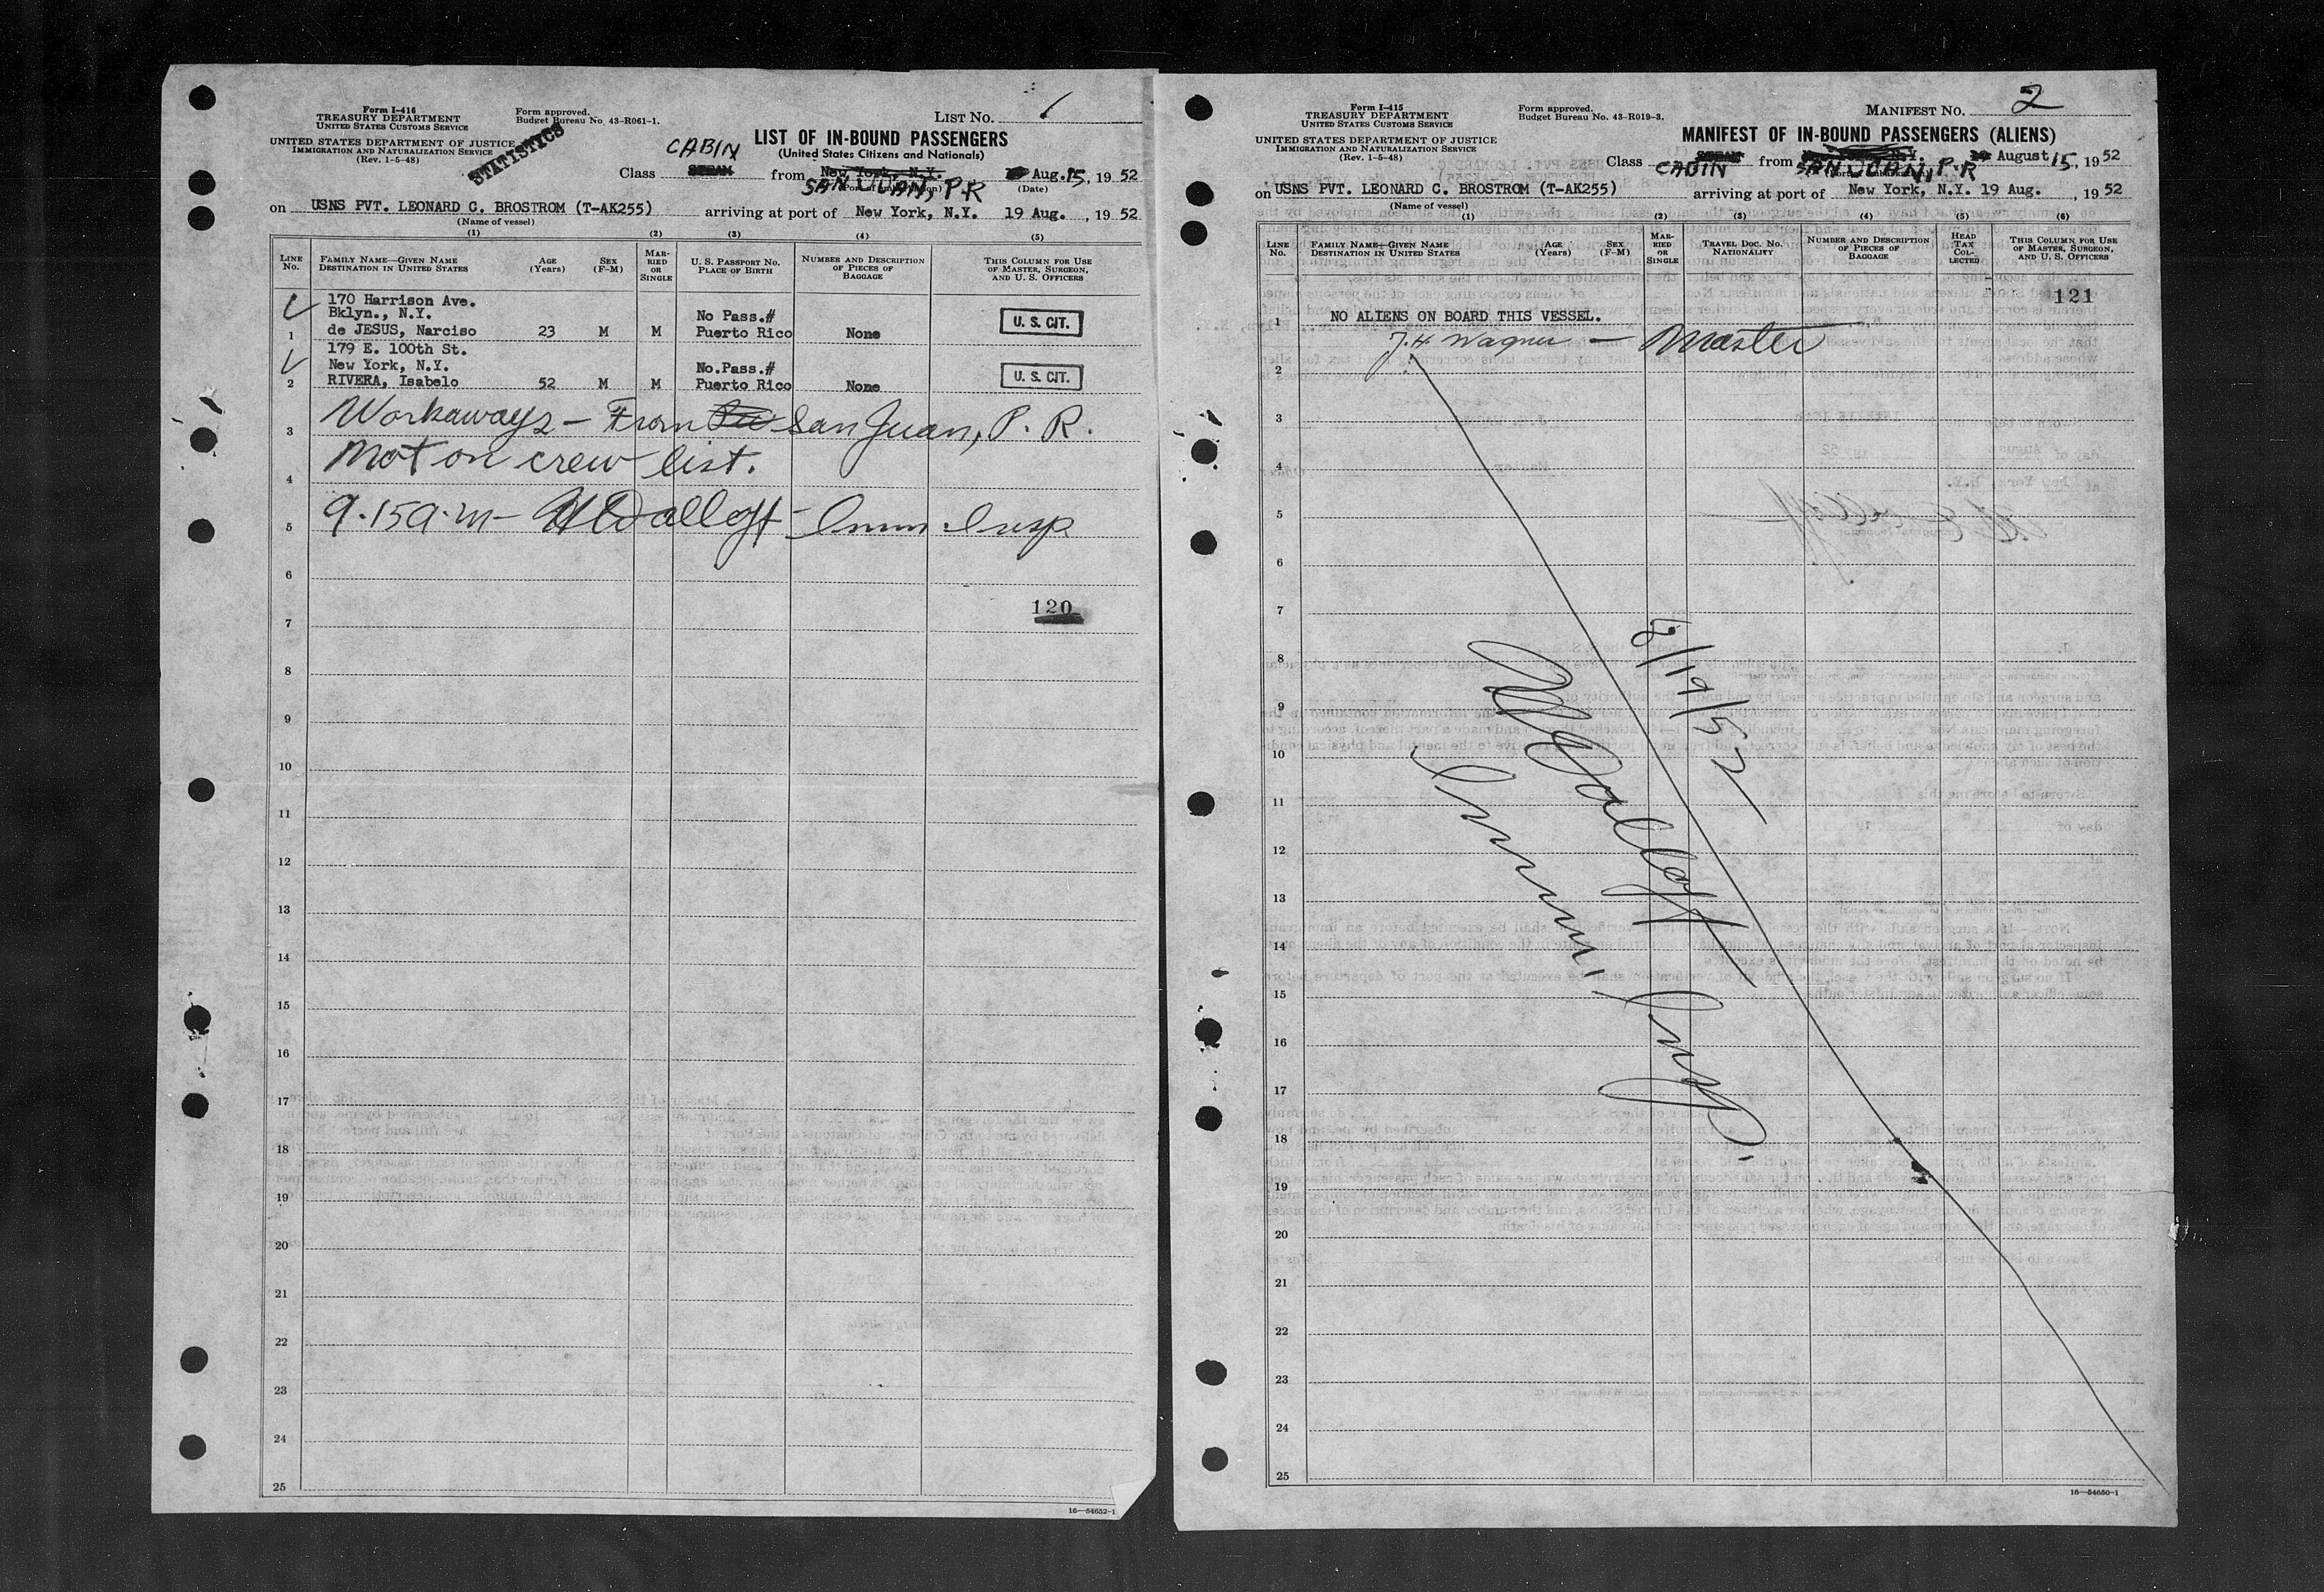 Form I-416
TREASURY DEPARTMENT
UNITED STATES CUSTOMS SERVICE
UNITED STATES DEPARTMENT OF JUSTICE
IMMIGRATION AND NATURALIZATION SERVICE
(Rev. 1-5-48)
Form approved.
Budget Bureau No. 43-R061-1.
STATISTICS
LIST NO. 1
LIST OF IN-BOUND PASSENGERS
(United States Citizens and Nationals)
CABIN
Class from New York, N.Y. Aug. 15, 1952
SAN JUAN, P.R
(Port of embarkation) (Date)
on USNS PVT. LEONARD C. BROSTROM (T-AK255) arriving at port of New York, N.Y. 19 Aug. , 1952
(Name of vessel)
(1) (2) (3) (4) (5)
LINE NO. FAMILY NAME—GIVEN NAME DESTINATION IN UNITED STATES AGE (Years) SEX (F-M) MARRIED OR SINGLE U. S. PASSPORT NO. PLACE OF BIRTH NUMBER AND DESCRIPTION OF PIECES OF BAGGAGE THIS COLUMN FOR USE OF MASTER, SURGEON, AND U. S. OFFICERS
170 Harrison Ave.
Bklyn., N.Y. No Pass.# U. S. CIT.
1 de JESUS, Narciso 23 M M Puerto Rico None
179 E. 100th St.
New York, N.Y. No.Pass.# U. S. CIT.
2 RIVERA, Isabelo 52 M M Puerto Rico None
3 Workaways - From San Juan, P. R.
4 Not on crew list.
5 9.15 a.m - Imm. Insp
6
120
7
8
9
10
11
12
13
14
15
16
17
18
19
20
21
22
23
24
25
16—54652-1
Form I-415
TREASURY DEPARTMENT
UNITED STATES CUSTOMS SERVICE
UNITED STATES DEPARTMENT OF JUSTICE
IMMIGRATION AND NATURALIZATION SERVICE
(Rev. 1-5-48)
Form approved.
Budget Bureau No. 43-R019-3.
MANIFEST NO. 2
MANIFEST OF IN-BOUND PASSENGERS (ALIENS)
Class CABIN from N.Y. August 15, 1952
SAN JUAN, P.R
on USNS PVT. LEONARD C. BROSTROM (T-AK255) arriving at port of New York, N.Y. 19 Aug. , 1952
(Name of vessel)
(1) (2) (3) (4) (5) (6)
LINE NO. FAMILY NAME—GIVEN NAME DESTINATION IN UNITED STATES AGE (Years) SEX (F-M) MARRIED OR SINGLE TRAVEL DOC. NO. NATIONALITY NUMBER AND DESCRIPTION OF PIECES OF BAGGAGE HEAD TAX COLLECTED THIS COLUMN FOR USE OF MASTER, SURGEON, AND U. S. OFFICERS
121
1 NO ALIENS ON BOARD THIS VESSEL.
J. H. Wagner - Master
2
3
4
5
6
7
8
9
10
11
12
13
14
15
16
17
18
19
20
21
22
23
24
25
8/19/52
Imm. Insp.
16—54650-1